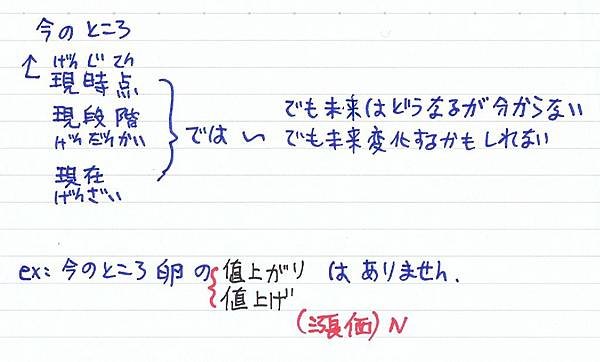 今のところ
げんじてん
現時点
現段階
げんだんかい
現在
げんざい
では い
でも未来はどうなるが分からない
でも未来変化するかもしれない
ex: 今のところ 卵の 値上がり はありません.
値上げ
(漲価) N